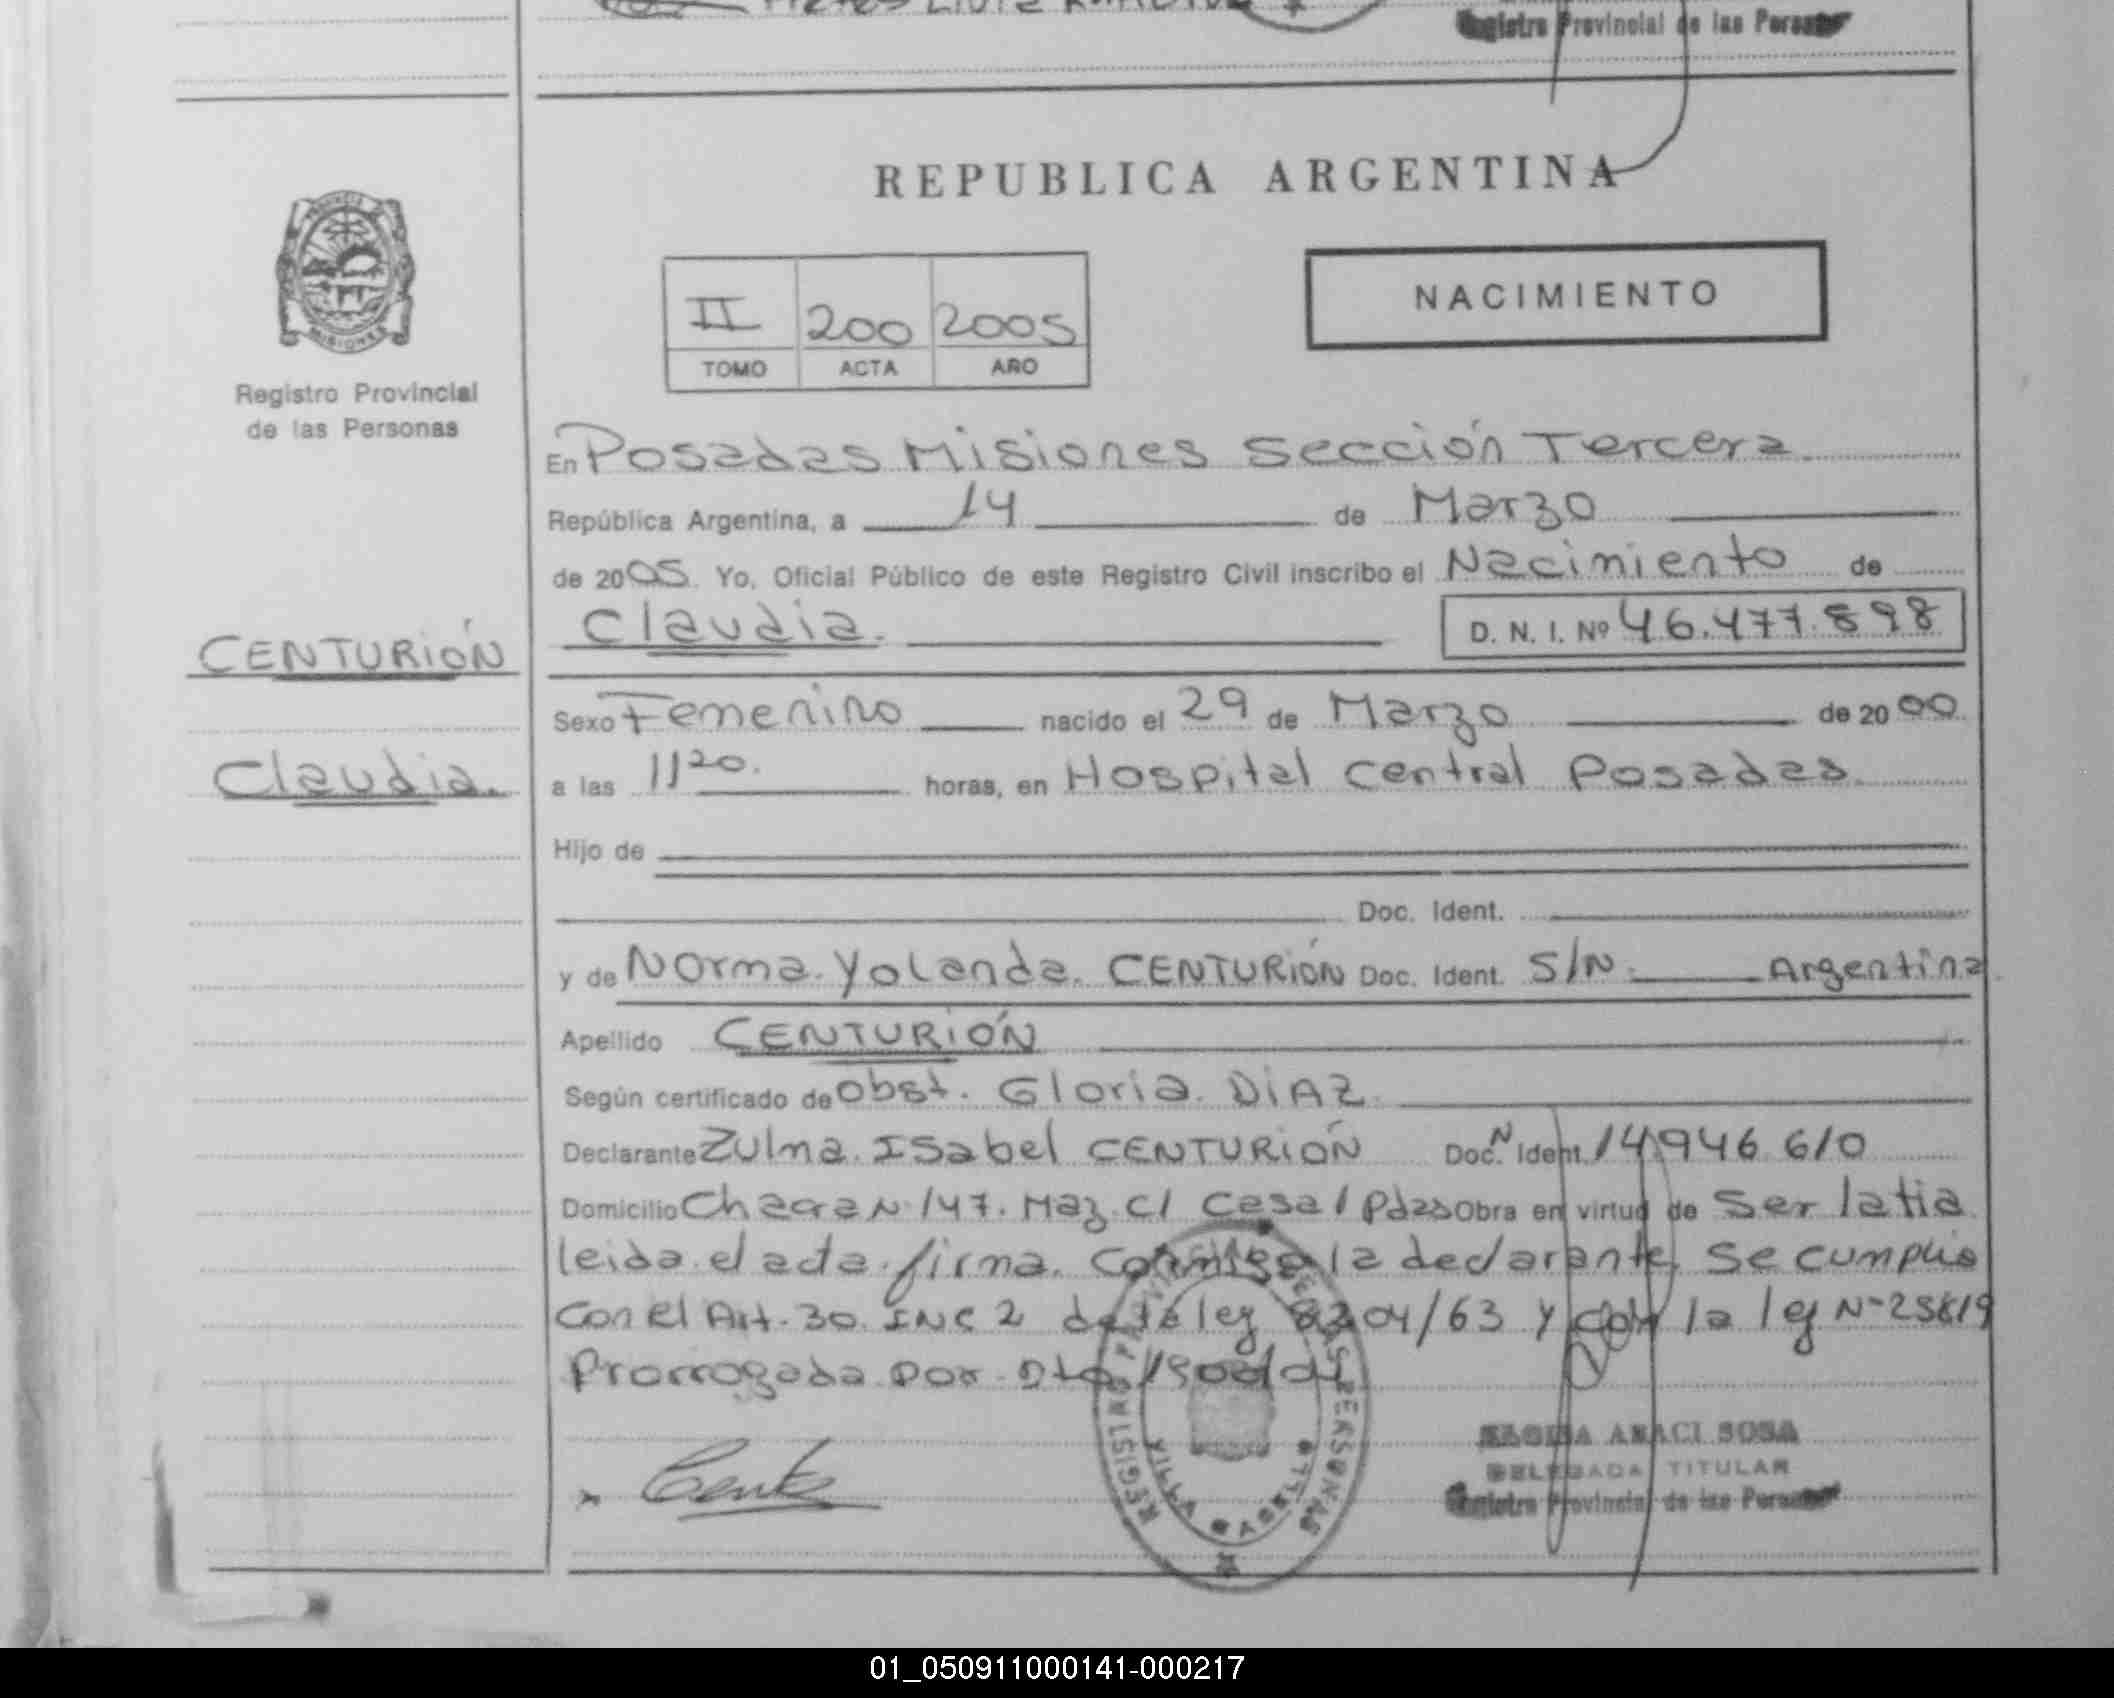 Registro Provincial de las Personas
REPUBLICA ARGENTINA
PROVINCIA DE
MISIONES
Registro Provincial
de las Personas
II 200 2005
TOMO ACTA AÑO
NACIMIENTO
En Posadas Misiones Sección Tercera
República Argentina, a 14 de Marzo
de 2005. Yo, Oficial Público de este Registro Civil inscribo el Nacimiento de
Claudia. D. N. I. Nº 46.477.898
CENTURIÓN
Claudia.
Sexo Femenino nacido el 29 de Marzo de 2000
a las 11 20. horas, en Hospital Central Posadas
Hijo de
Doc. Ident.
y de Norma Yolanda. CENTURIÓN Doc. Ident. S/N. Argentina.
Apellido CENTURIÓN
Según certificado de Obst. Gloria DiAZ
Declarante Zulma Isabel CENTURIÓN Doc. N Ident. 14.946.610
Domicilio Chacra N 147. Maz. C/ Casa 1 Pdas Obra en virtud de Ser la tia
leida el acta firma conmigo la declarante, Se cumplio
con el Art. 30. INC 2 de la ley 8204/63 y con la ley N-25819
Prorrogada por
REGISTRO PROVINCIAL DE LAS PERSONAS
VILLA CABELLO
ARACI SOSA
DELEGADA TITULAR
Registro Provincial de las Personas
01_050911000141-000217